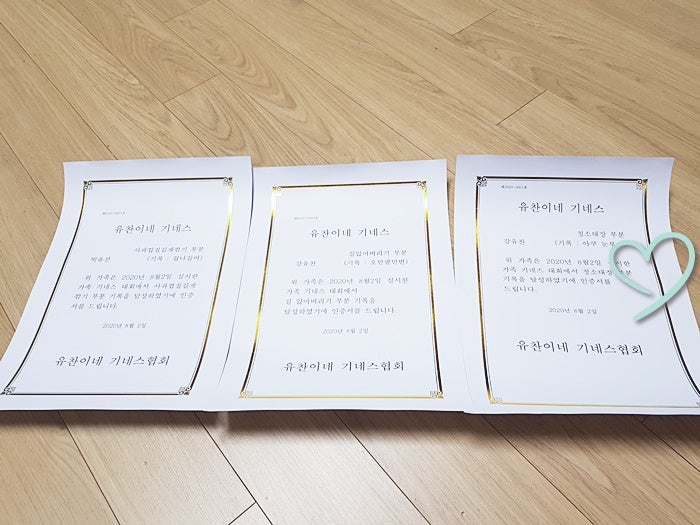 유찬이네 기네스
사과껍질길게깎기 부문
박유선 (기록 : 겁나길어)
위 가족은 2020년 8월2일 실시한
가족 기네스 대회에서 사과껍질길게
깎기 부문 기록을 달성하였기에 인증
서를 드립니다.
2020년 8월 2일
유찬이네 기네스협회
유찬이네 기네스
길잃어버리기 부문
강유찬 (기록 : 오만팔만번)
위 가족은 2020년 8월2일 실시한
가족 기네스 대회에서
길 잃어버리기 부문 기록을
달성하였기에 인증서를 드립니다.
2020년 8월 2일
유찬이네 기네스협회
유찬이네 기네스
청소대장 부문
강유찬 (기록 : 아주
위 가족은 2020년 8월2일 실시한
가족 기네스 대회에서 청소대장 부문
기록을 달성하였기에 인증서를
드립니다.
2020년 8월 2일
유찬이네 기네스협회